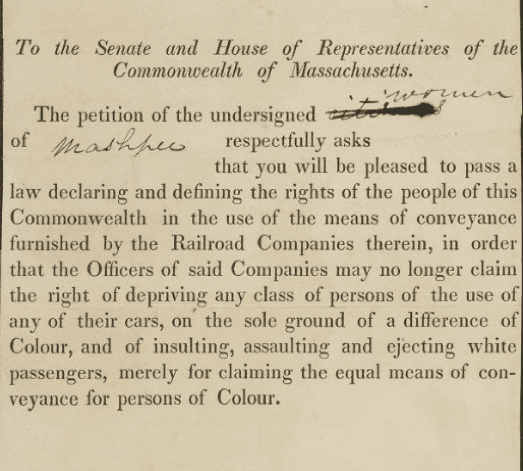 To the Senate and House of Representatives of the
Commonwealth of Massachusetts.
women
The petition of the undersigned
of Mashpee respectfully asks
that you will be pleased to pass a
law declaring and defining the rights of the people of this
Commonwealth in the use of the means of conveyance
furnished by the Railroad Companies therein, in order
that the Officers of said Companies may no longer claim
the right of depriving any class of persons of the use of
any of their cars, on the sole ground of a difference of
Colour, and of insulting, assaulting and ejecting white
passengers, merely for claiming the equal means of con-
veyance for persons of Colour.